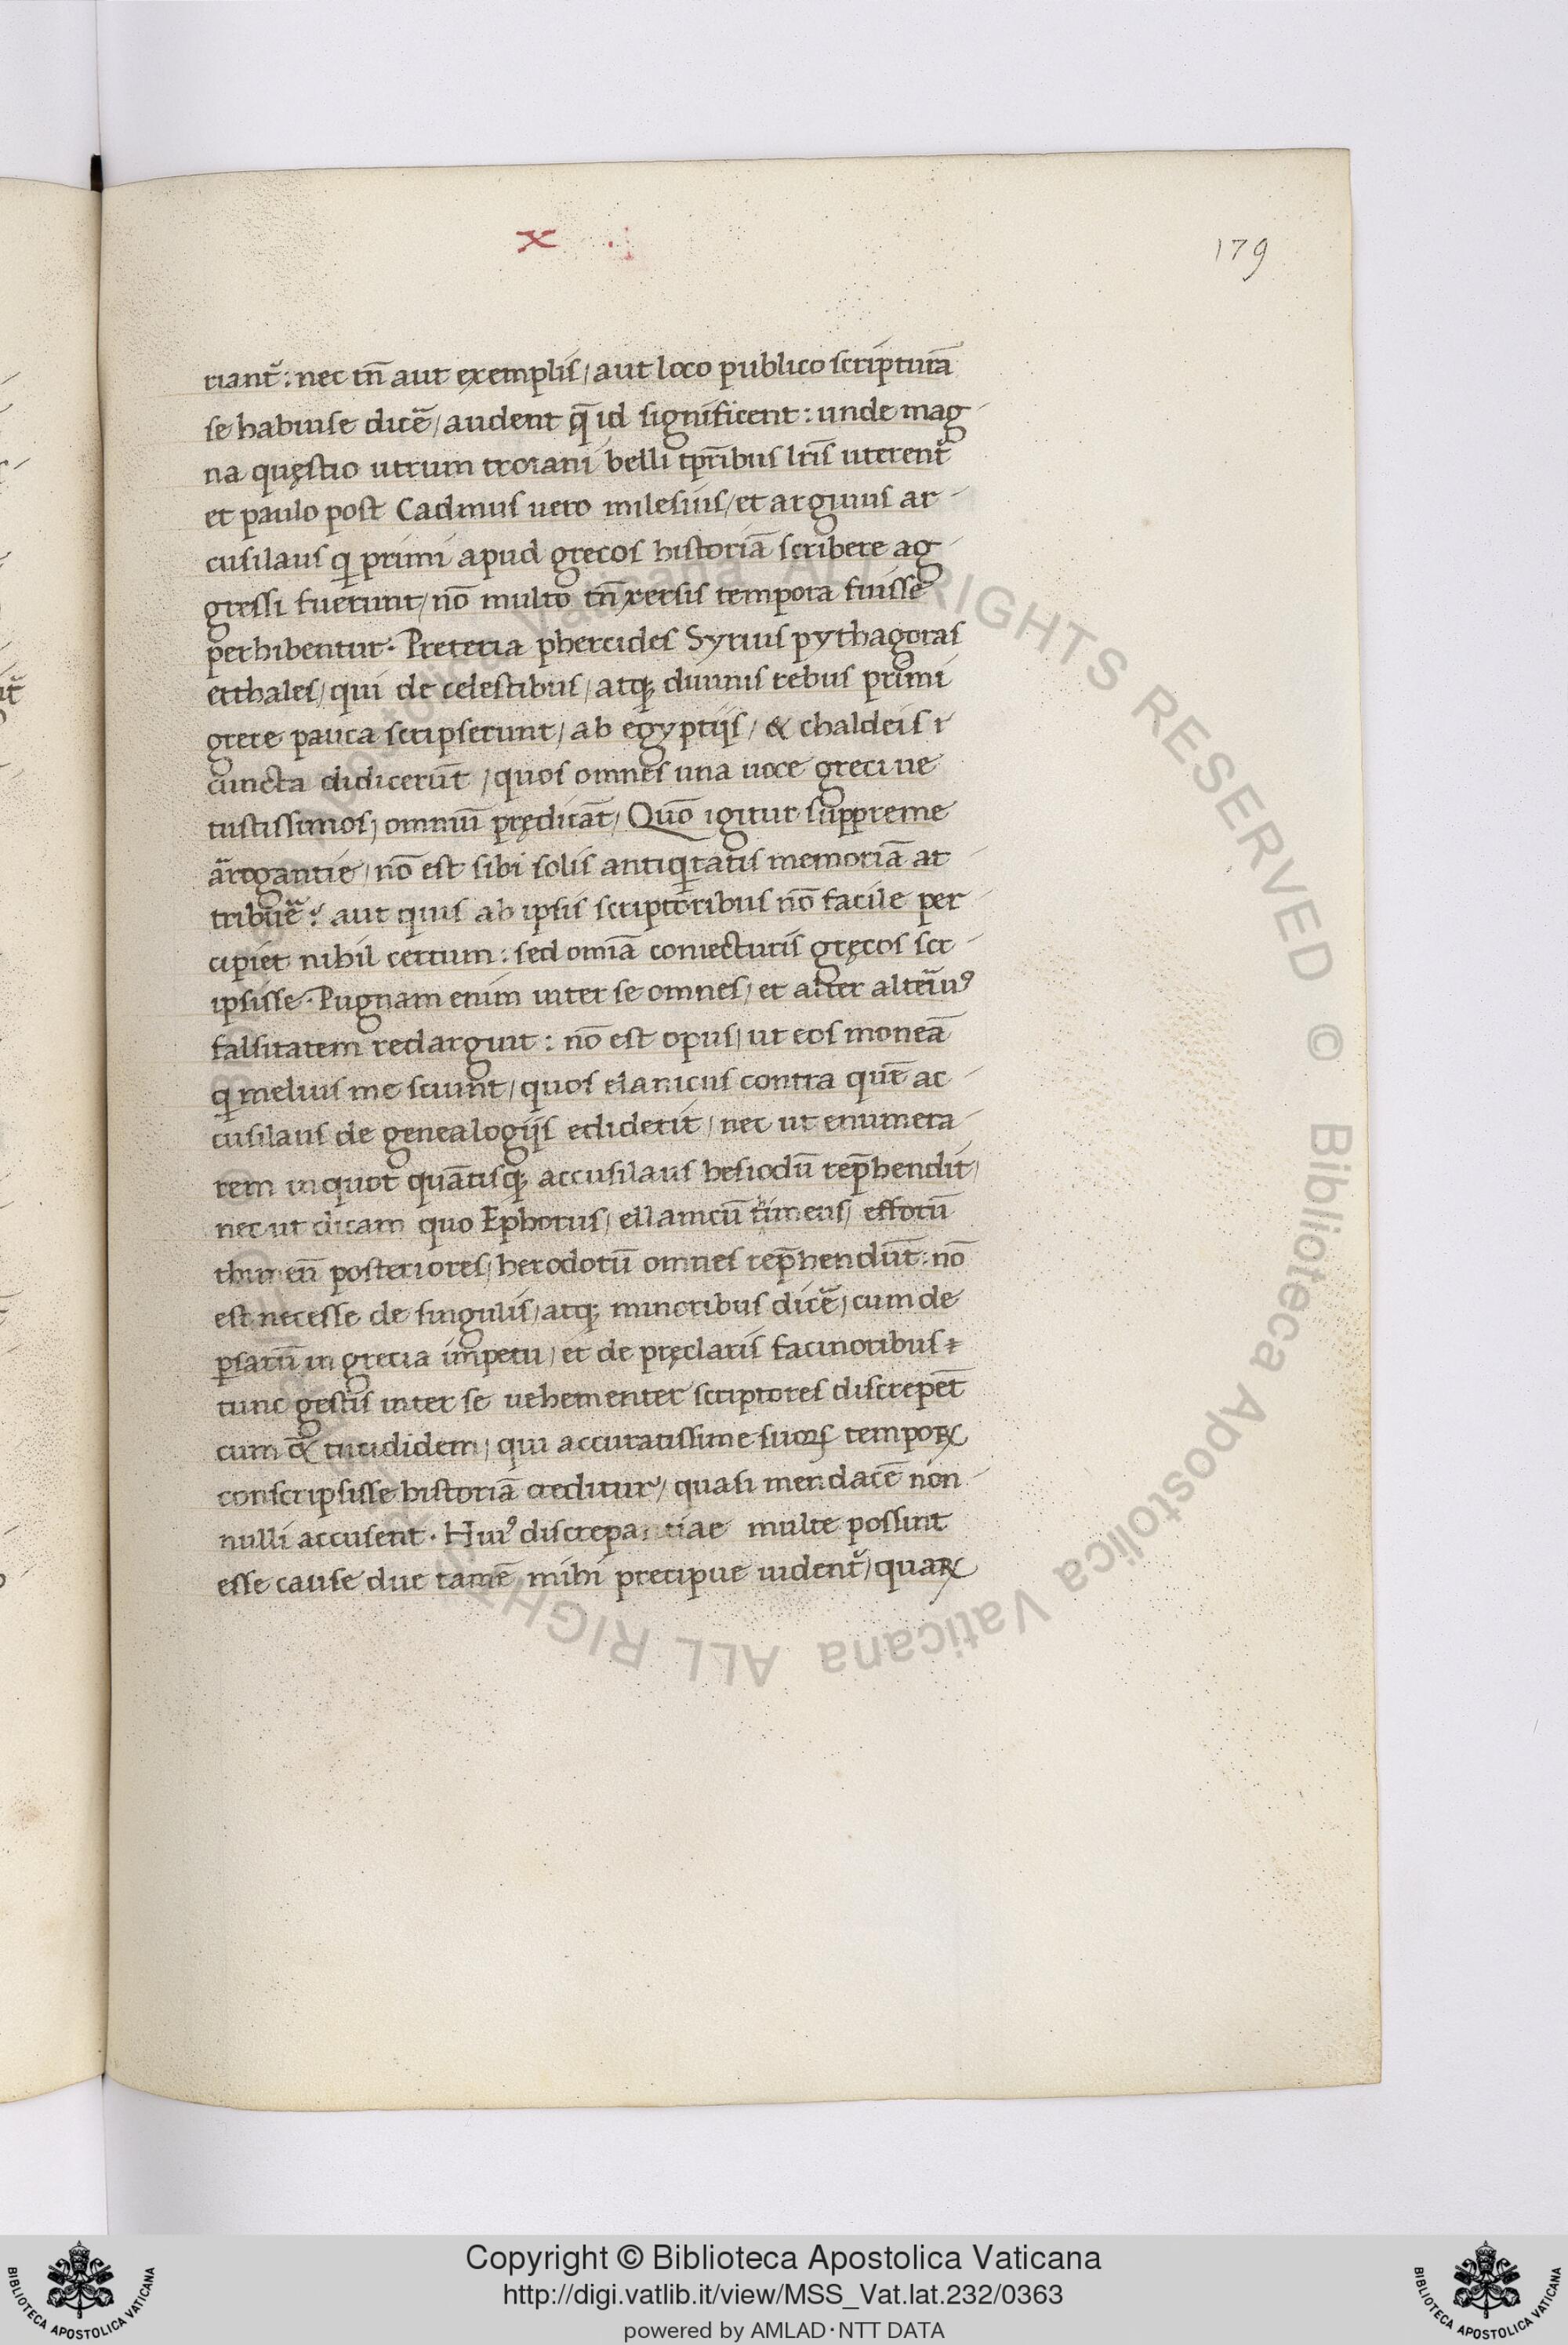 x
179
riant᷑: nec tn̄ aut exemplis/ aut loco publico scripturā
se habuisse dicē/ audent q̄ id significent: unde mag-
na quęstio utrum troiani belli tp̄ribus lr̄is uterent᷑
et paulo post Cadmus uero milesius/ et arguius ar-
cusilaus qi primi apud grecos historiā scribere ag-
gressi fuerunt/ nō multo tn̄ xersis tempora fuisse
perhibentur. Preterea pherecides Syrius pythagoras
et thales/ qui de celestibus/ atq; diuinis rebus primi
grece pauca scripserunt/ ab egyptijs/ & chaldeis
cuncta didicerūt/ quos omnes una uoce greci ue
tustissimos/ omniū prędicāt/ Quō igitur suppreme
arrogantie/ nō est sibi solis antiqitatis memoriā at-
tribuē? aut quis ab ipsis scriptoribus nō facile per-
cipiet nihil certum: sed omīa coniecturis gręcos scr-
ipsisse. Pugnam enim inter se omnes/ et alter alteriꝰ
falsitatem redarguit: nō est opus/ ut eos moneā
qi melius me sciunt/ quos elanicus contra quē ac-
cusilaus de genealogijs ediderit/ nec ut enumera-
rem in quot quātisq; accusilaus hesiodū rep̄hendit/
nec ut dicam quo Ephorus/ ellanicū timeus/ efforū
thimeū posteriores/ herodotū omnes rep̄hendūt: nō
est necesse de singulis/ atq; minoribus dicē/ cum de
ꝑsarū in grecia impetu/ et de pręclaris facinoribus
tunc gestis inter se uehementer scriptores discrepēt
cum tucididem/ qui accuratissime suoꝝ tempoꝝ
conscripsisse historiā creditur/ quasi mendacē non-
nulli accusent. Huiꝰ discrepantiae multe possint
esse cause due tamē mihi precipue uident᷑/ quaꝝ
Copyright © Biblioteca Apostolica Vaticana
http://digi.vatlib.it/view/MSS_Vat.lat.232/0363
powered by AMLAD·NTT DATA
BIBLIOTECA APOSTOLICA VATICANA
BIBLIOTECA APOSTOLICA VATICANA
© Biblioteca Apostolica Vaticana ALL RIGHTS RESERVED